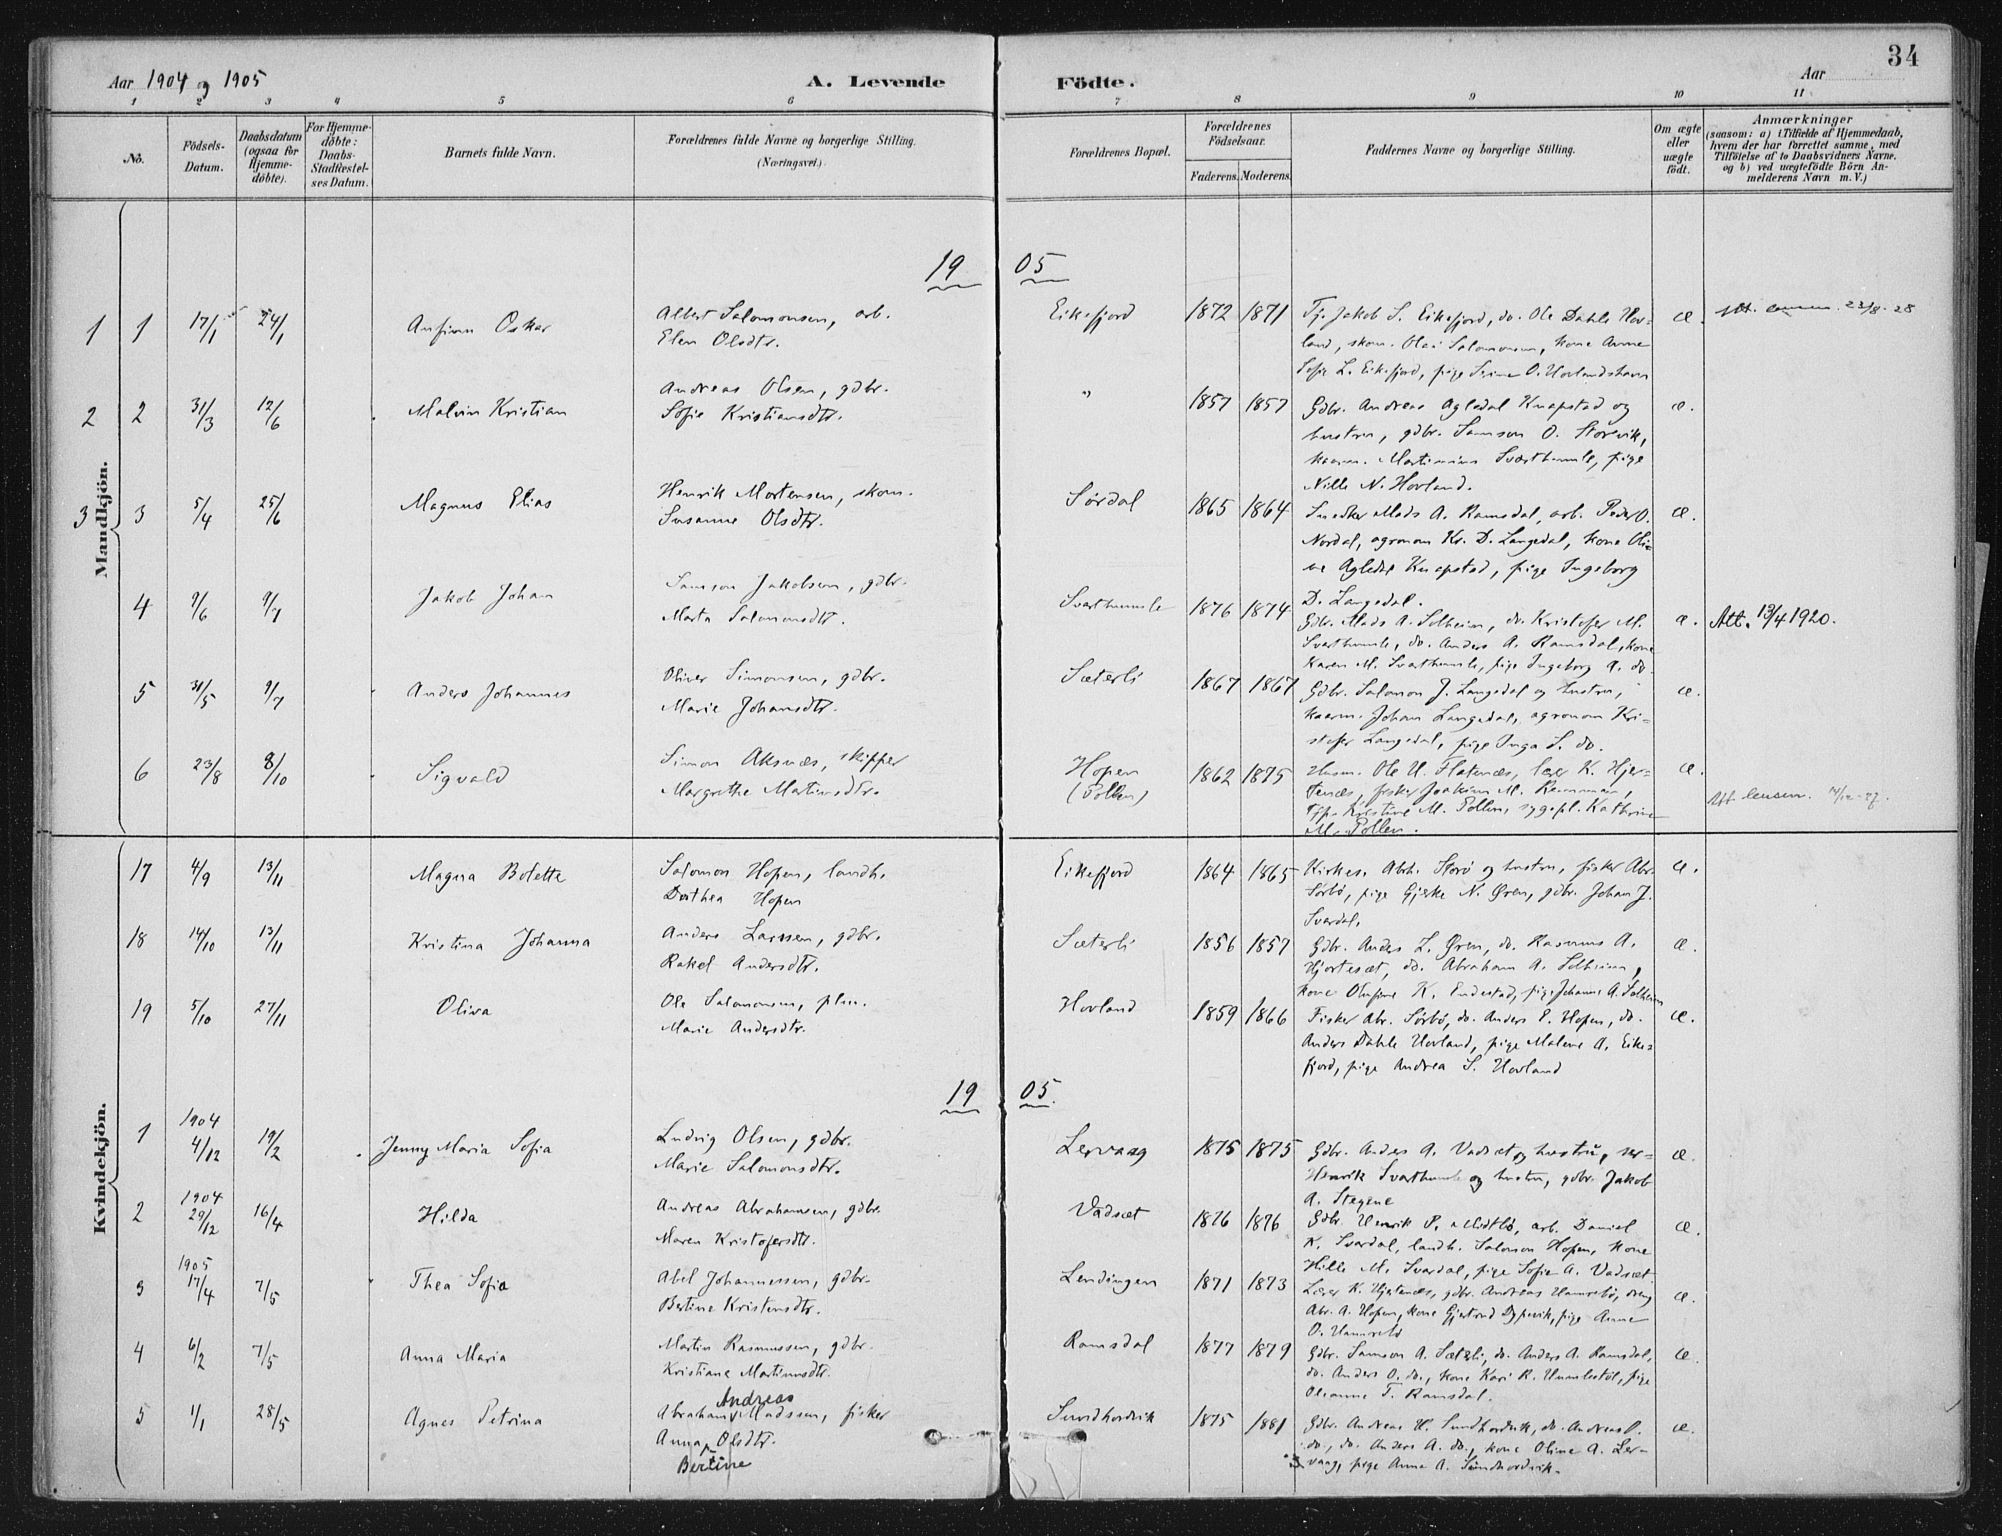 34
Aar 1904 og 1905
A. Levende Födte.
Aar
1 2 3 4 5 6 7 8 9 10 11
No.
Födsels-Datum.
Daabsdatum (ogsaa for Hjemme-döbte).
For Hjemme-döbte: Daabs-Stadfæstel-ses Datum.
Barnets fulde Navn.
Forældrenes fulde Navne og borgerlige Stilling. (Næringsvei.)
Forældrenes Bopæl.
Forældrenes Födselsaar.
Faderens. Moderens.
Faddernes Navne og borgerlige Stilling.
Om ægte eller uægte födt.
Anmærkninger
(saasom: a) i Tilfælde af Hjemmedaab,
hvem der har forrettet samme, med
Tilföielse af to Daabsvidners Navne,
og b) ved uægtefödte Börn An-
melderens Navn m. V.)
Mandkjön.
1905
1 1 17/1 24/1 Anfinn Oskar Albert Salomonsen, arb. Eikefjord 1872 1871 Tj. Jakob S. Eikefjord, do. Ole Dahle Hov- æ. Att. 23/8-28
Elen Olsdtr. land, skom. Salomonsen, kone Anne
Sofie L. Eikefjord, pige O. Hovlandshavn
2 2 31/3 12/6 Malvin Kristian Andreas Olsen, gdbr. " 1857 1857 Gdbr. Andreas Agledal Knapstad og æ.
Sofie Kristiansdtr. hustru, gdbr. Samson O. Storevik,
Martinius Svarthumle, pige
Nille N. Hovland.
3 3 5/4 25/6 Magnus Elias Henrik Mortensen, skom. Sørdal 1865 1864 Snedker Mads A. Ramsdal, arb. Peder O. æ.
Susanne Olsdtr. Nordal, agronom Kr. D. Langedal, kone Oli-
ne Agledal Knapstad, pige Ingeborg
D. Langedal.
4 9/6 9/7 Jakob Johan Samson Jakobsen, gdbr. Svarthumle 1876 1874 Gdbr. Mads A. Solheim, do. Kristofer M. æ. Att. 13/4 1920.
Marta Salomonsdtr. Svarthumle, do. Anders A. Ramsdal, kone
Karen M. Svarthumle, pige Ingeborg A. do.
5 31/5 9/7 Anders Johannes Oliver Simonsen, gdbr. Sæterli 1867 1867 Gdbr. Salomon J. Langedal og hustru, æ.
Marie Johansdtr. Johan Langedal, agronom Kri-
stofer Langedal, pige Inga S. do.
6 23/8 8/10 Sigvald Simon Aksnæs, skipper Hopen (Pollen) 1862 1875 Husm. Ole U. Flatenæs, lærer K. Hjer- æ.
Margrethe Martinsdtr. tenæs, fisker Joakim M.
Kristine M. Pollen, sygepl. Kathrine
M. Pollen.
Att.
Kvindekjön.
17 4/9 13/11 Magna Bolette Salomon Hopen, landh. Eikefjord 1864 1865 Kirkes. Abrh. Storø og hustru, fisker Abr. æ.
Dorthea Hopen Sørbø, pige Gjerke N. Øren, gdbr. Johan J.
Svardal.
18 14/10 13/11 Kristina Johanna Anders Larssen, gdbr. Sæterli 1856 1857 Gdbr. Anders L. Øren, do. Rasmus A. æ.
Rakel Andersdtr. Hjortesæt, do. Abraham A. Solheim,
kone K. Endestad, pige Johanne A. Solheim
19 5/10 27/11 Oliva Ole Salomonsen, plm. Hovland 1859 1866 Fisker Abr. Sørbø, do. Anders E. Hopen, do. æ.
Marie Andersdtr. Anders Dahle Hovland, pige Malene A. Eike-
fjord, pige Andrea S. Hovland
1905.
1 1904 4/12 19/2 Jenny Maria Sofia Ludvig Olsen, gdbr. Lervaag 1875 1875 Gdbr. Anders A. Vadsæt og hustru, æ.
Marie Salomonsdtr. Henrik Svarthumle og hustru, gdbr. Jakob
A. Stegene
2 1904 29/12 16/4 Hilda Andreas Abrahamsen, gdbr. Vadsæt 1876 1876 Gdbr. Henrik P. Midtbø, arb. Daniel æ.
Maren Kristofersdtr. K. Svardal, landh. Salomon Hopen, kone
Hille M. Svardal, pige Sofie A. Vadsæt
3 1905 17/4 7/5 Thea Sofie Abel Johannessen, gdbr. Lendingen 1871 1873 Lærer K. Hjertenæs, gdbr. Andreas Hamrebø, dreng æ.
Bertine Kristensdtr. Abr. A. Hopen, kone Gjertrud Dypevik, pige Anne
O. Hamrebø
4 6/2 7/5 Anna Maria Martin Rasmussen, gdbr. Ramsdal 1877 1879 Gdbr. Samson A. Sæterli, do. Anders A. Ramsdal, æ.
Kristiane Martinusdtr. do. Anders O. do., kone Kari R. Humlestøl, pige
Oleanne T. Ramsdal.
5 1/1 28/5 Agnes Petrina Abraham Andreas Madssen, fisker Sundhordvik 1875 1881 Gdbr. Andreas H. Sundhordvik, do. Andreas P. æ.
Anna Bertine Olsdtr. do., do. Anders A. do., kone Oline A. Ler-
vaag, pige Anna A. Sundhordvik.